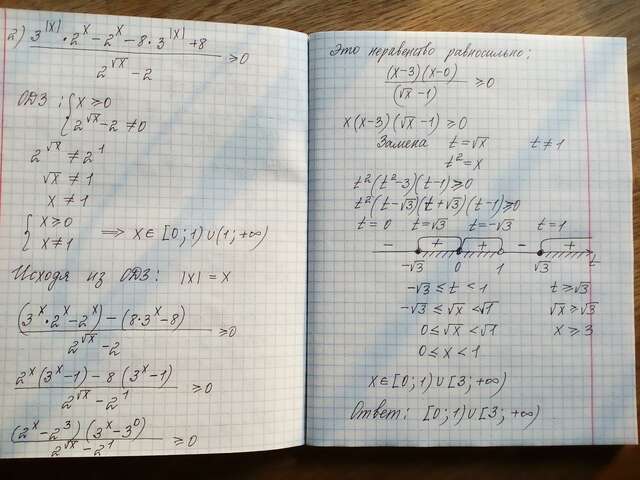 2) (3^|x| · 2^x − 2^x − 8 · 3^|x| + 8) / (2^√x − 2) ≥ 0
ОДЗ: { x ≥ 0
{ 2^√x − 2 ≠ 0
2^√x ≠ 2^1
√x ≠ 1
x ≠ 1
{ x ≥ 0
{ x ≠ 1 ⟹ x ∈ [0; 1) ∪ (1; +∞)
Исходя из ОДЗ: |x| = x
((3^x · 2^x − 2^x) − (8 · 3^x − 8)) / (2^√x − 2) ≥ 0
(2^x (3^x − 1) − 8 (3^x − 1)) / (2^√x − 2^1) ≥ 0
((2^x − 2^3)(3^x − 3^0)) / (2^√x − 2^1) ≥ 0
Это неравенство равносильно:
((x−3)(x−0)) / (√x − 1) ≥ 0
x(x−3)(√x − 1) ≥ 0
Замена t = √x t ≠ 1
t² = x
t²(t²−3)(t−1) ≥ 0
t²(t−√3)(t+√3)(t−1) ≥ 0
t = 0 t = √3 t = −√3 t = 1
− + + − +
−√3 0 1 √3 t
−√3 ≤ t < 1 t ≥ √3
−√3 ≤ √x < √1 √x ≥ √3
0 ≤ √x < √1 x ≥ 3
0 ≤ x < 1
x ∈ [0; 1) ∪ [3; +∞)
Ответ: [0; 1) ∪ [3; +∞)